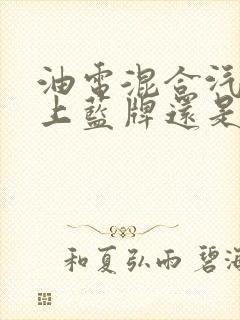 油電混合汽
上藍牌還是
和夏弘雨碧海